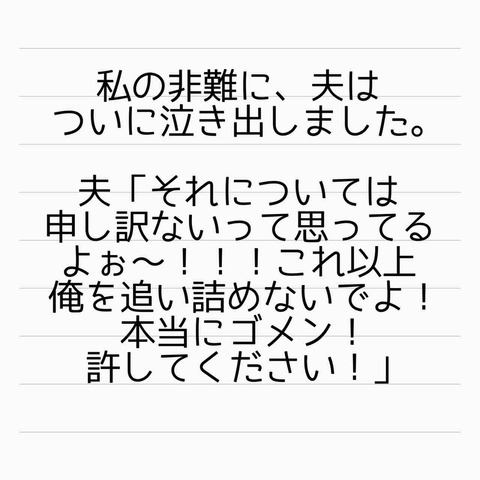 私の非難に、夫は
ついに泣き出しました。
夫「それについては
申し訳ないって思ってる
よぉ〜！！！これ以上
俺を追い詰めないでよ！
本当にゴメン！
許してください！」